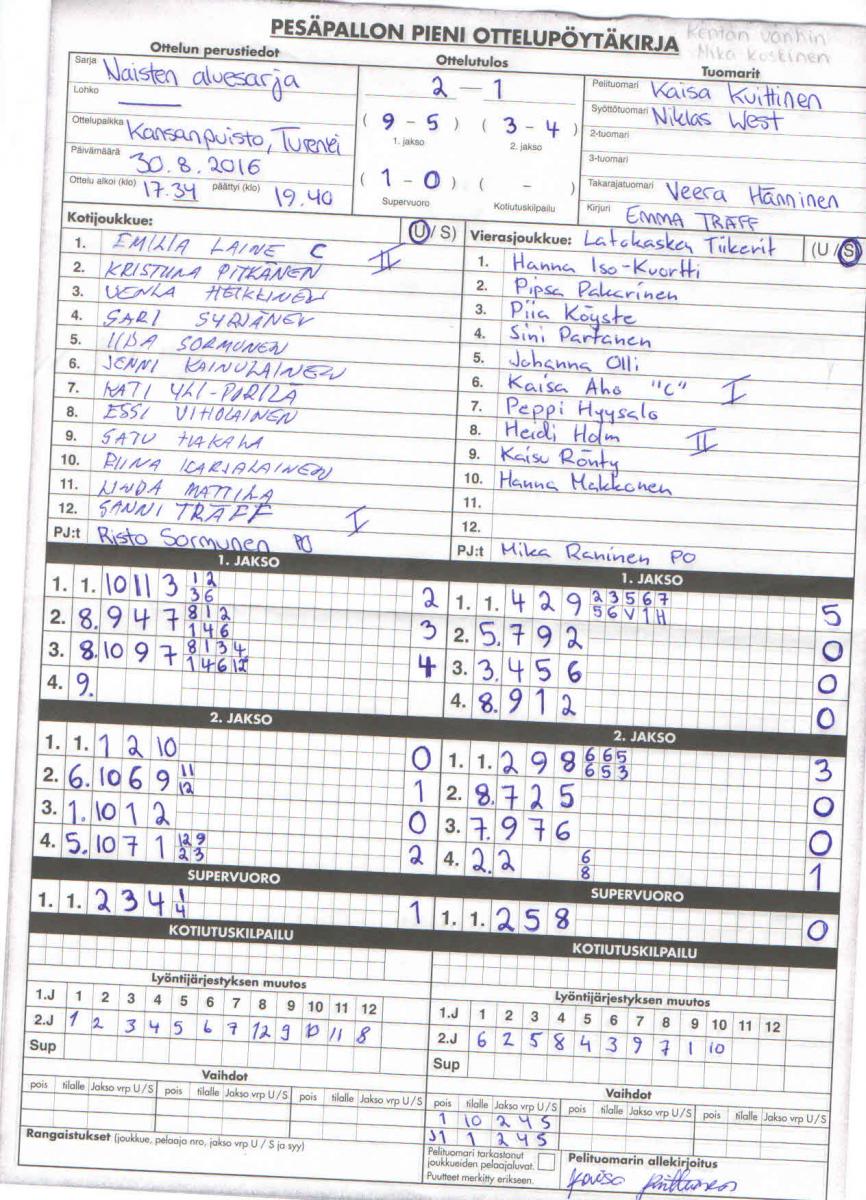 PESÄPALLON PIENI OTTELUPÖYTÄKIRJA
Kentän vanhin
Mika Koskinen
Ottelun perustiedot
Ottelutulos
Tuomarit
Sarja Naisten aluesarja
Lohko
Ottelupaikka Kansanpuisto, Turenki
Päivämäärä 30.8.2016
Ottelu alkoi (klo) 17.34 päättyi (klo) 19.40
2 – 1
( 9 - 5 ) ( 3 - 4 )
1. jakso 2. jakso
( 1 - 0 ) ( - )
Supervuoro Kotiutuskilpailu
Pelituomari Kaisa Kuittinen
Syöttötuomari Niklas West
2-tuomari
3-tuomari
Takarajatuomari Veera Hänninen
Kirjuri EMMA TRÄFF
Kotijoukkue: (U / S)
1. EMILIA LAINE C II
2. KRISTIINA PITKÄNEN
3. VENLA HEIKKINEN
4. SARI SYRJÄNEN
5. IIDA SORMUNEN
6. JENNI KAINULAINEN
7. KATI YLI-PORILA
8. ESSI VIHOLAINEN
9. SATU HAKALA
10. RIINA KARJALAINEN
11. LINDA MATTILA
12. SANNI TRÄFF I
PJ:t Risto Sormunen PO
Vierasjoukkue: Latokasken Tiikerit (U / S)
1. Hanna Iso-Kuortti
2. Pipsa Pakarinen
3. Piia Köyste
4. Sini Partanen
5. Johanna Olli
6. Kaisa Aho "C" I
7. Peppi Hyysalo
8. Heidi Holm II
9. Kaisu Rönty
10. Hanna Makkonen
11.
12.
PJ:t Mika Raninen PO
1. JAKSO
1. 1. 10 11 3 1 2 2
3 6
2. 8. 9 4 7 8 1 2 3
1 4 6
3. 8. 10 9 7 8 1 3 4 4
1 4 6 12
4. 9.
1. JAKSO
1. 1. 4 2 9 2 3 5 6 7 5
5 6 V 1 H
2. 5. 7 9 2 0
3. 3. 4 5 6 0
4. 8. 9 1 2 0
2. JAKSO
1. 1. 1 2 10 0
2. 6. 10 6 9 11 1
12
3. 1. 10 1 2 0
4. 5. 10 7 1 12 9 2
2 3
2. JAKSO
1. 1. 2 9 8 6 6 5 3
6 5 3
2. 8. 7 2 5 0
3. 7. 9 7 6 0
4. 2. 2 6 1
8
SUPERVUORO
1. 1. 2 3 4 1 1
4
SUPERVUORO
1. 1. 2 5 8 0
KOTIUTUSKILPAILU
KOTIUTUSKILPAILU
Lyöntijärjestyksen muutos
1.J 1 2 3 4 5 6 7 8 9 10 11 12
2.J 1 2 3 4 5 6 7 12 9 10 11 8
Sup
Lyöntijärjestyksen muutos
1.J 1 2 3 4 5 6 7 8 9 10 11 12
2.J 6 2 5 8 4 3 9 7 1 10
Sup
Vaihdot
pois tilalle Jakso vrp U / S pois tilalle Jakso vrp U / S pois tilalle Jakso vrp U / S
Vaihdot
pois tilalle Jakso vrp U / S pois tilalle Jakso vrp U / S pois tilalle Jakso vrp U / S
1 10 2 4 S
J1 1 2 4 S
Rangaistukset (joukkue, pelaaja nro, jakso vrp U / S ja syy)
Pelituomari tarkastanut
joukkueiden pelaajaluvat.
Puutteet merkitty erikseen.
Pelituomarin allekirjoitus
Kaisa Kuittinen